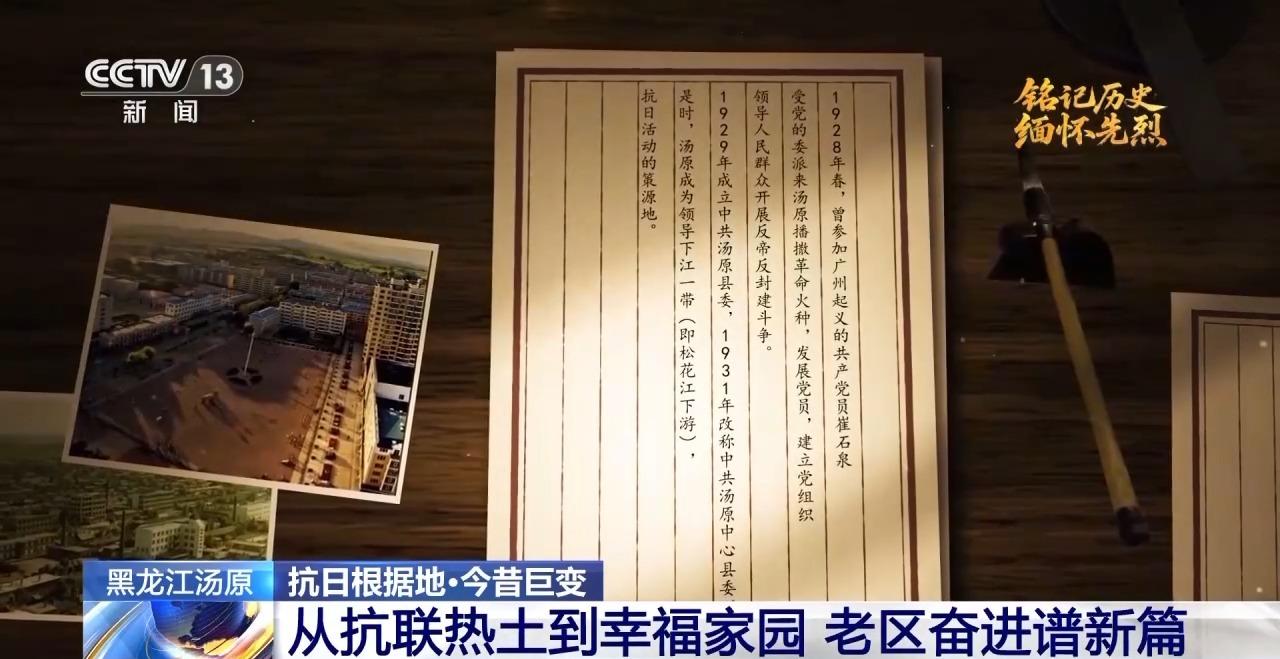 CCTV 13
新闻
铭记历史
缅怀先烈
1928年春，曾参加广州起义的共产党员崔石泉
受党的委派来汤原播撒革命火种，发展党员，建立党组织
领导人民群众开展反帝反封建斗争。
1929年成立中共汤原县委，1931年改称中共汤原中心县委
是时，汤原成为领导下江一带（即松花江下游），
抗日活动的策源地。
黑龙江汤原
抗日根据地·今昔巨变
从抗联热土到幸福家园 老区奋进谱新篇